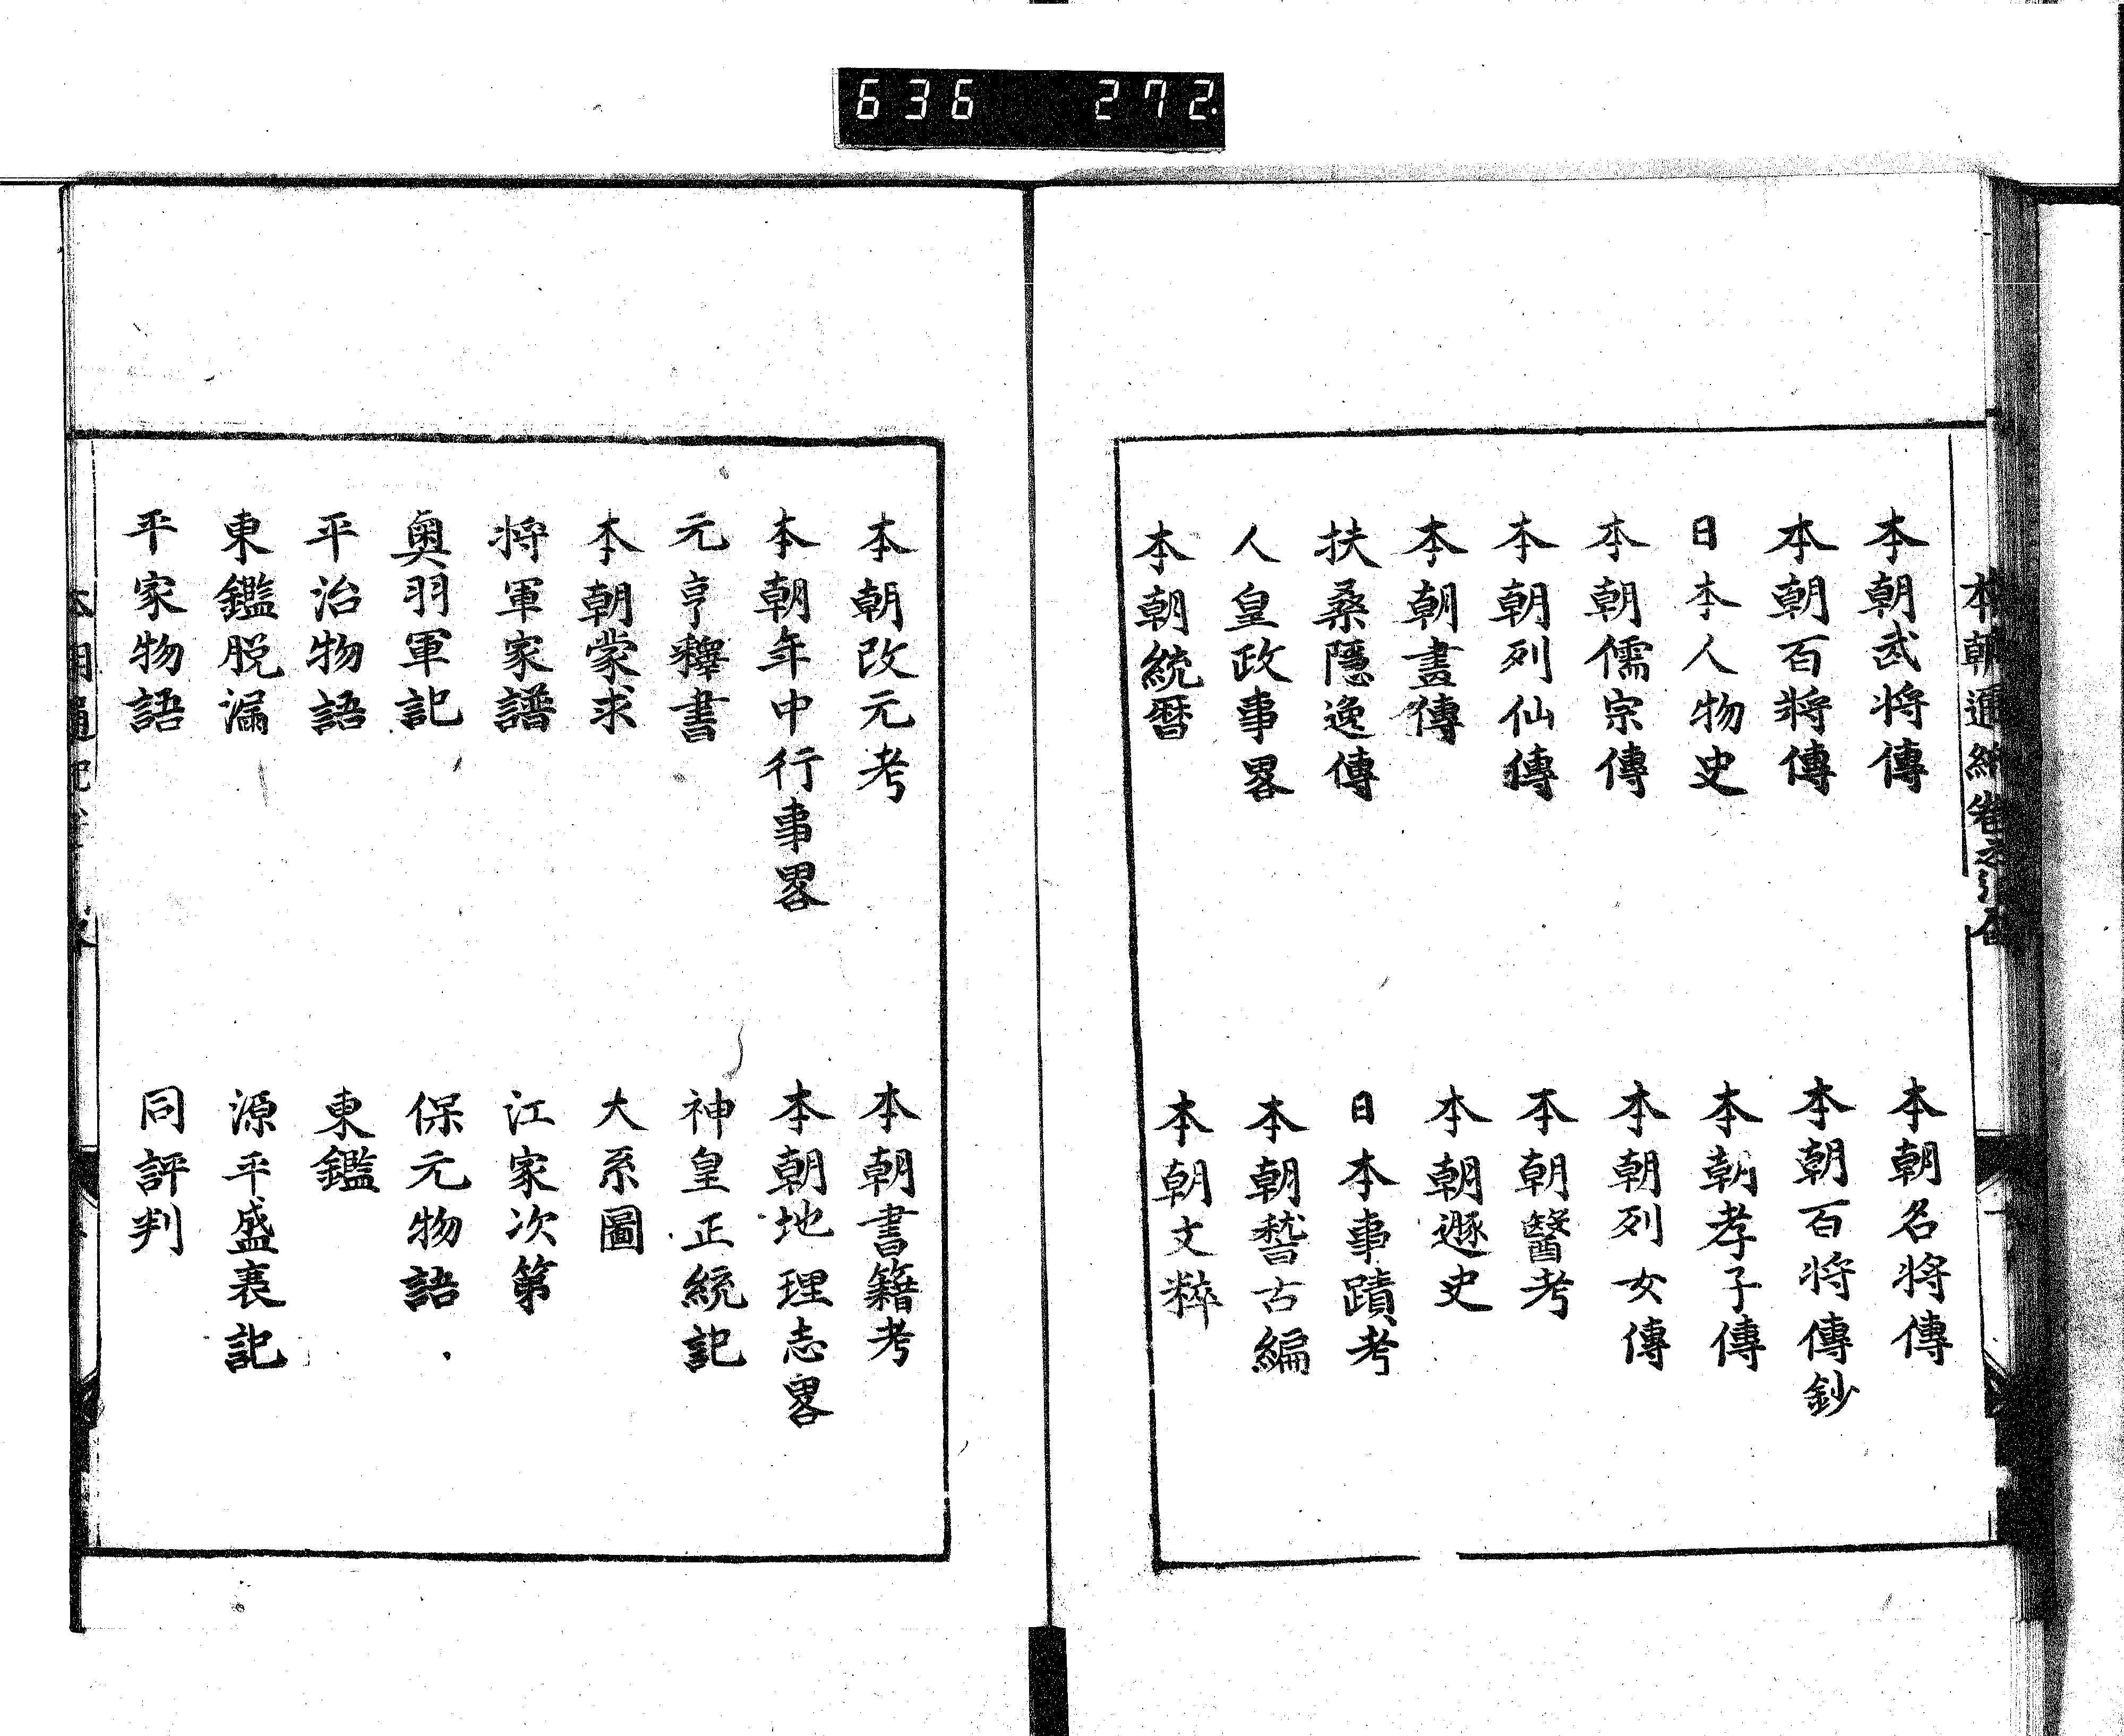 636 272
本朝武将傳 本朝名将傳
本朝百將傳 本朝百将傳鈔
日本人物史 本朝孝子傳
本朝儒宗傳 本朝列女傳
本朝列仙傳 本朝醫考
本朝畫傳 本朝遯史
扶桑隱逸傳 日本事蹟考
人皇政事畧 本朝稽古編
本朝統暦 本朝文粹
本朝改元考 本朝書籍考
本朝年中行事畧 本朝地理志畧
元亨釋書 神皇正統記
本朝蒙求 大系圖
将軍家譜 江家次第
奥羽軍記 保元物語
平治物語 東鑑
東鑑脱漏 源平盛衰記
平家物語 同評判